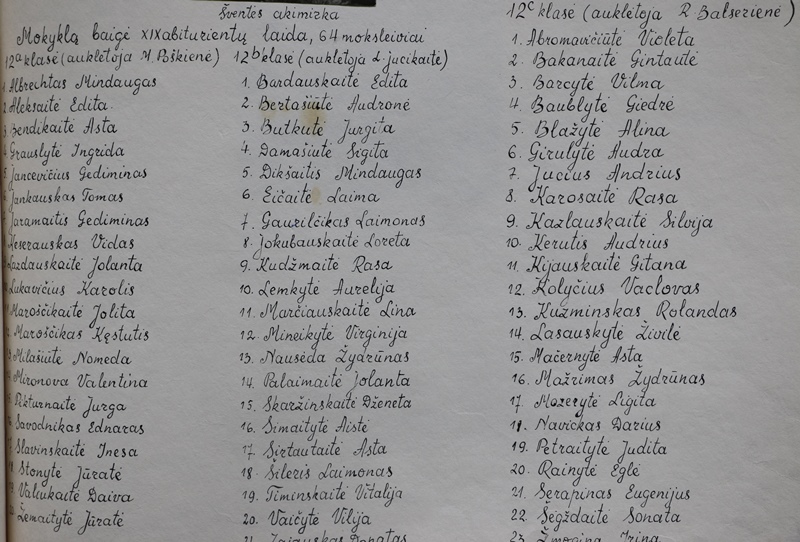 Šventės akimirka
Mokyklą baigė XIX abiturientų laida, 64 moksleiviai
12ᵃ klasė (auklėtoja M. Poškienė)
1 Albrechtas Mindaugas
2 Aleksaitė Edita
3 Bendikaitė Asta
Grauslytė Ingrida
Jancevičius Gediminas
Jankauskas Tomas
Jaramaitis Gediminas
Keserauskas Vidas
Lazdauskaitė Jolanta
Lukavičius Karolis
Maroščikaitė Jolita
Maroščikas Kęstutis
Milašiūtė Nomeda
Mironova Valentina
Pikturnaitė Jurga
Savodnikas Ednaras
Slavinskaitė Inesa
18 Stonytė Jūratė
Valiukaitė Daiva
Žemaitytė Jūratė
12ᵇ klasė (auklėtoja L. Jucikaitė)
1. Bardauskaitė Edita
2. Bertašiūtė Audronė
3. Butkutė Jurgita
4. Damašiutė Sigita
5. Dikšaitis Mindaugas
6. Eičaitė Laima
7. Gaurilčikas Laimonas
8. Jokubauskaitė Loreta
9. Kudžmaitė Rasa
10. Lemkytė Aurelija
11. Marčiauskaitė Lina
12. Mineikytė Virginija
13. Nausėda Žydrūnas
14. Palaimaitė Jolanta
15. Skaržinskaitė Dženeta
16. Simaitytė Aistė
17. Sirtautaitė Asta
18. Šileris Laimonas
19. Timinskaitė Vitalija
20. Vaičytė Vilija
21. Donatas
12ᶜ klasė (auklėtoja R Balserienė)
1. Abromavičiūtė Violeta
2. Bakanaitė Gintautė
3. Barcytė Vilma
4. Baublytė Giedrė
5. Blažytė Alina
6. Girulytė Audra
7. Jucius Andrius
8. Karosaitė Rasa
9. Kazlauskaitė Silvija
10. Kerutis Audrius
11. Kijauskaitė Gitana
12. Kolyčius Vaclovas
13. Kuzminskas Rolandas
14. Lasauskytė Živilė
15. Mačernytė Asta
16. Mažrimas Žydrūnas
17. Mozerytė Ligita
18. Navickas Darius
19. Petraitytė Judita
20. Rainytė Eglė
21. Serapinas Eugenijus
22. Šegždaitė Sonata
23. Irina